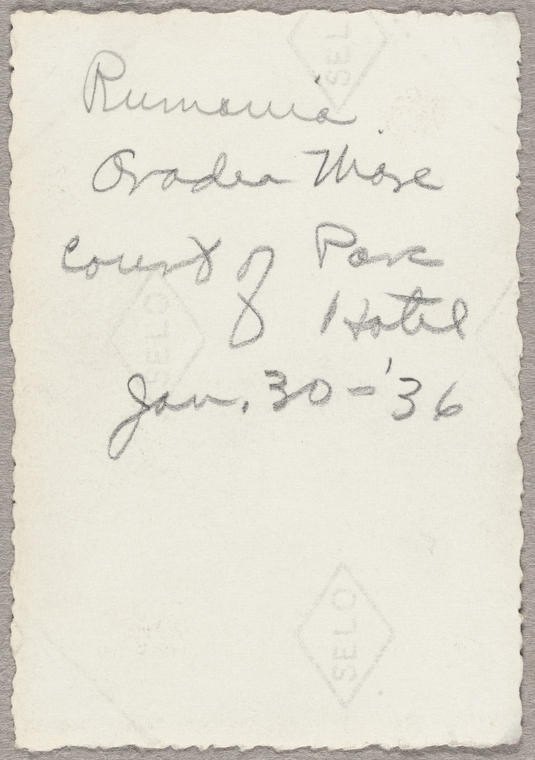 Rumania
Oradea Mare
court of Park
Hotel
Jan. 30 - '36
SELO
SELO
SELO